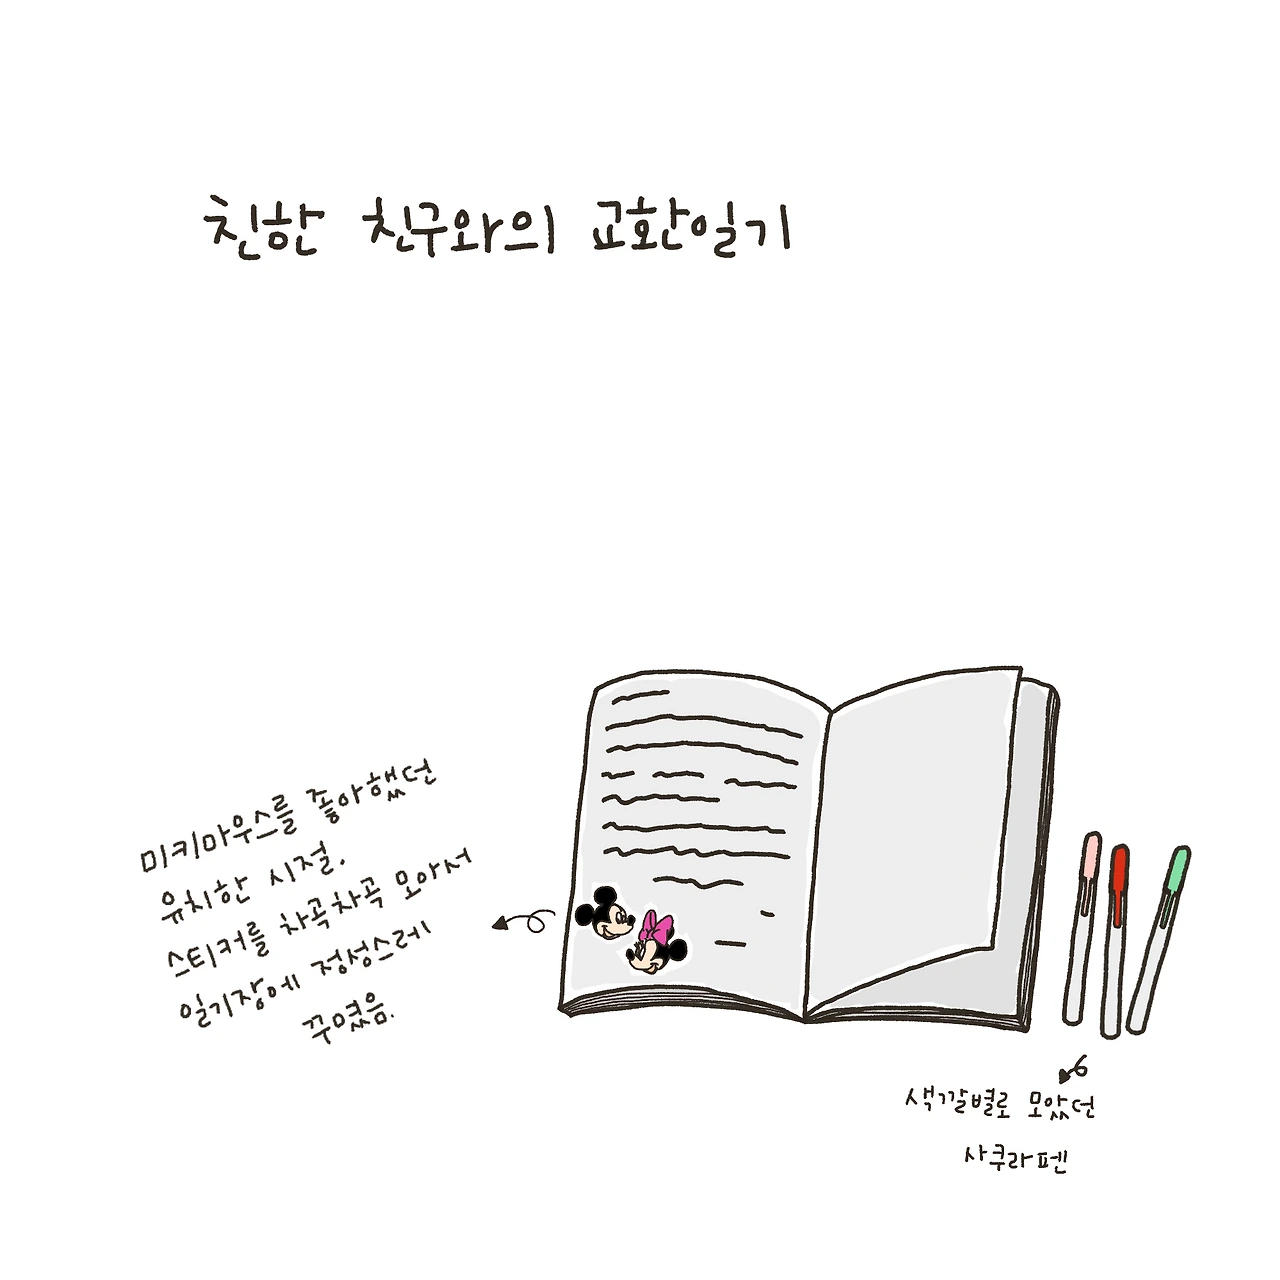 친한 친구와의 교환일기
미키마우스를 좋아했던
유치한 시절.
스티커를 차곡차곡 모아서
일기장에 정성스레
꾸몄음.
색깔별로 모았던
사쿠라펜